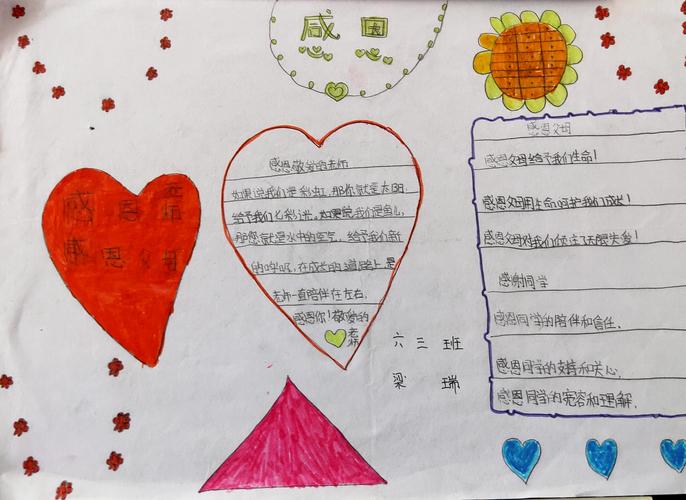 感 恩
感 恩 老师
感 恩 父母
感恩敬爱的老师
如果说我们是彩虹,那你就是太阳,
给予我们七彩光。如果说我们是鱼儿,
那您就是水中的空气,给予我们新
的呼吸,在成长的道路上是
老师一直陪伴在左右,
感恩你!敬爱的
老师
六 三 班
梁 瑞
感恩父母
感恩父母给予我们生命!
感恩父母用生命呵护我们成长!
感恩父母对我们倾注了无限关爱!
感谢同学
感恩同学的陪伴和信任,
感恩同学的支持和关心,
感恩同学的宽容和理解.